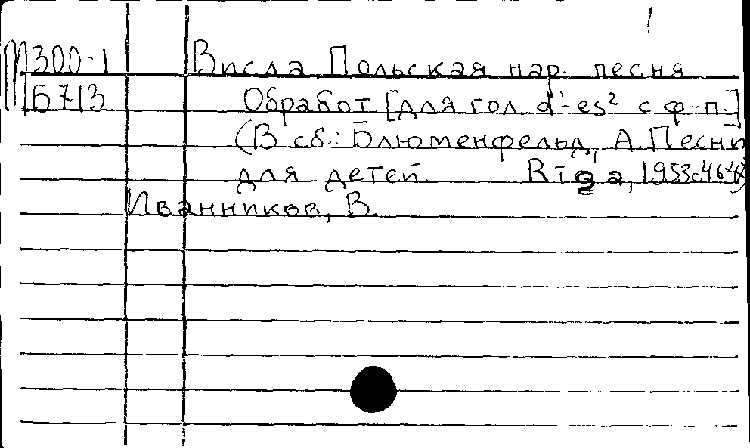 М300-1 Висла Польская нар. песня
Б713 Обработ [для гол d¹-es² с ф-п.]
(В сб.: Блюменфельд, А Песни
для детей. Rīga, 1953.
Иванников, В.